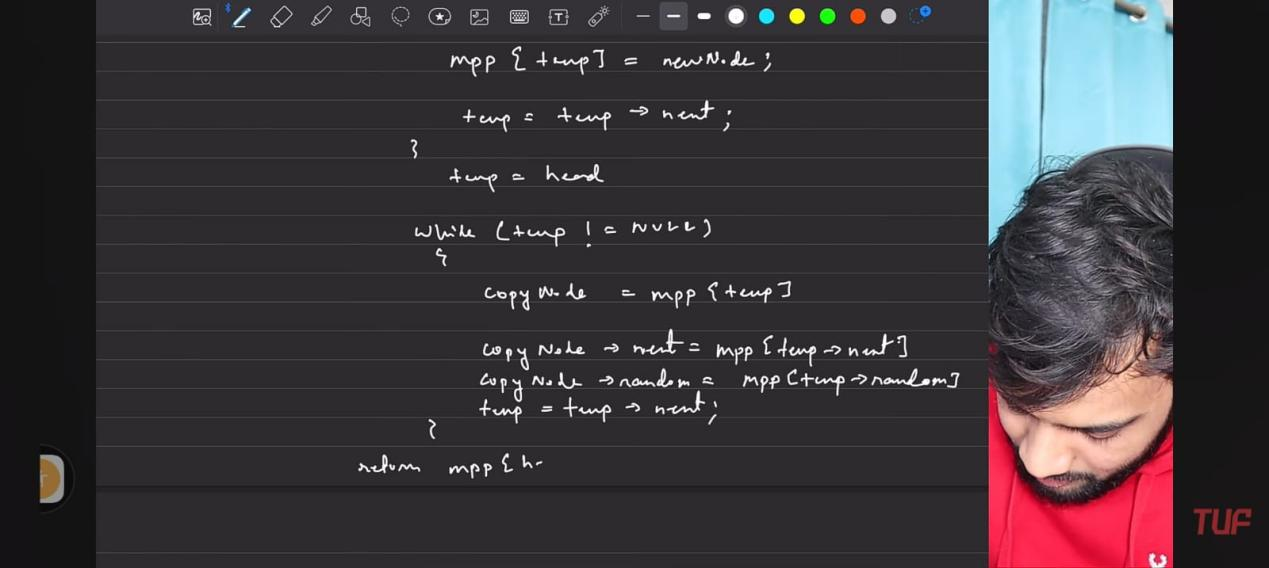 mpp [temp] = newNode;
temp = temp → next;
}
temp = head
while (temp != NULL)
{
copyNode = mpp [temp]
copyNode → next = mpp [temp → next]
copyNode → random = mpp [temp → random]
temp = temp → next;
}
return mpp [h
T
TUF